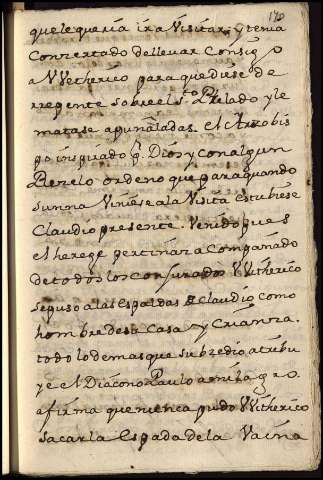 170
que le queria ir a Visitar, y tenia
Concertado de llevar Consigo
a VVitherico para que diese de
rrepente sobre el sto. Prelado y le
matase a puñaladas. el Arzobis
po inspirado pr. Dios y con algun
Rezelo ordeno que para quando
Sunna Viniese a la Visita estubiese
Claudio presente. Venido pues
el herege pertinaz acompañado
de todos los conjurados VVitherico
se puso a las espaldas de Claudio como
hombre de su Casa y Crianza.
todo lo demas que subzedio atribu
ye el Diacono Paulo a milagro.
afirma que nunca pudo VVitherico
sacar la Espada de la Vaina